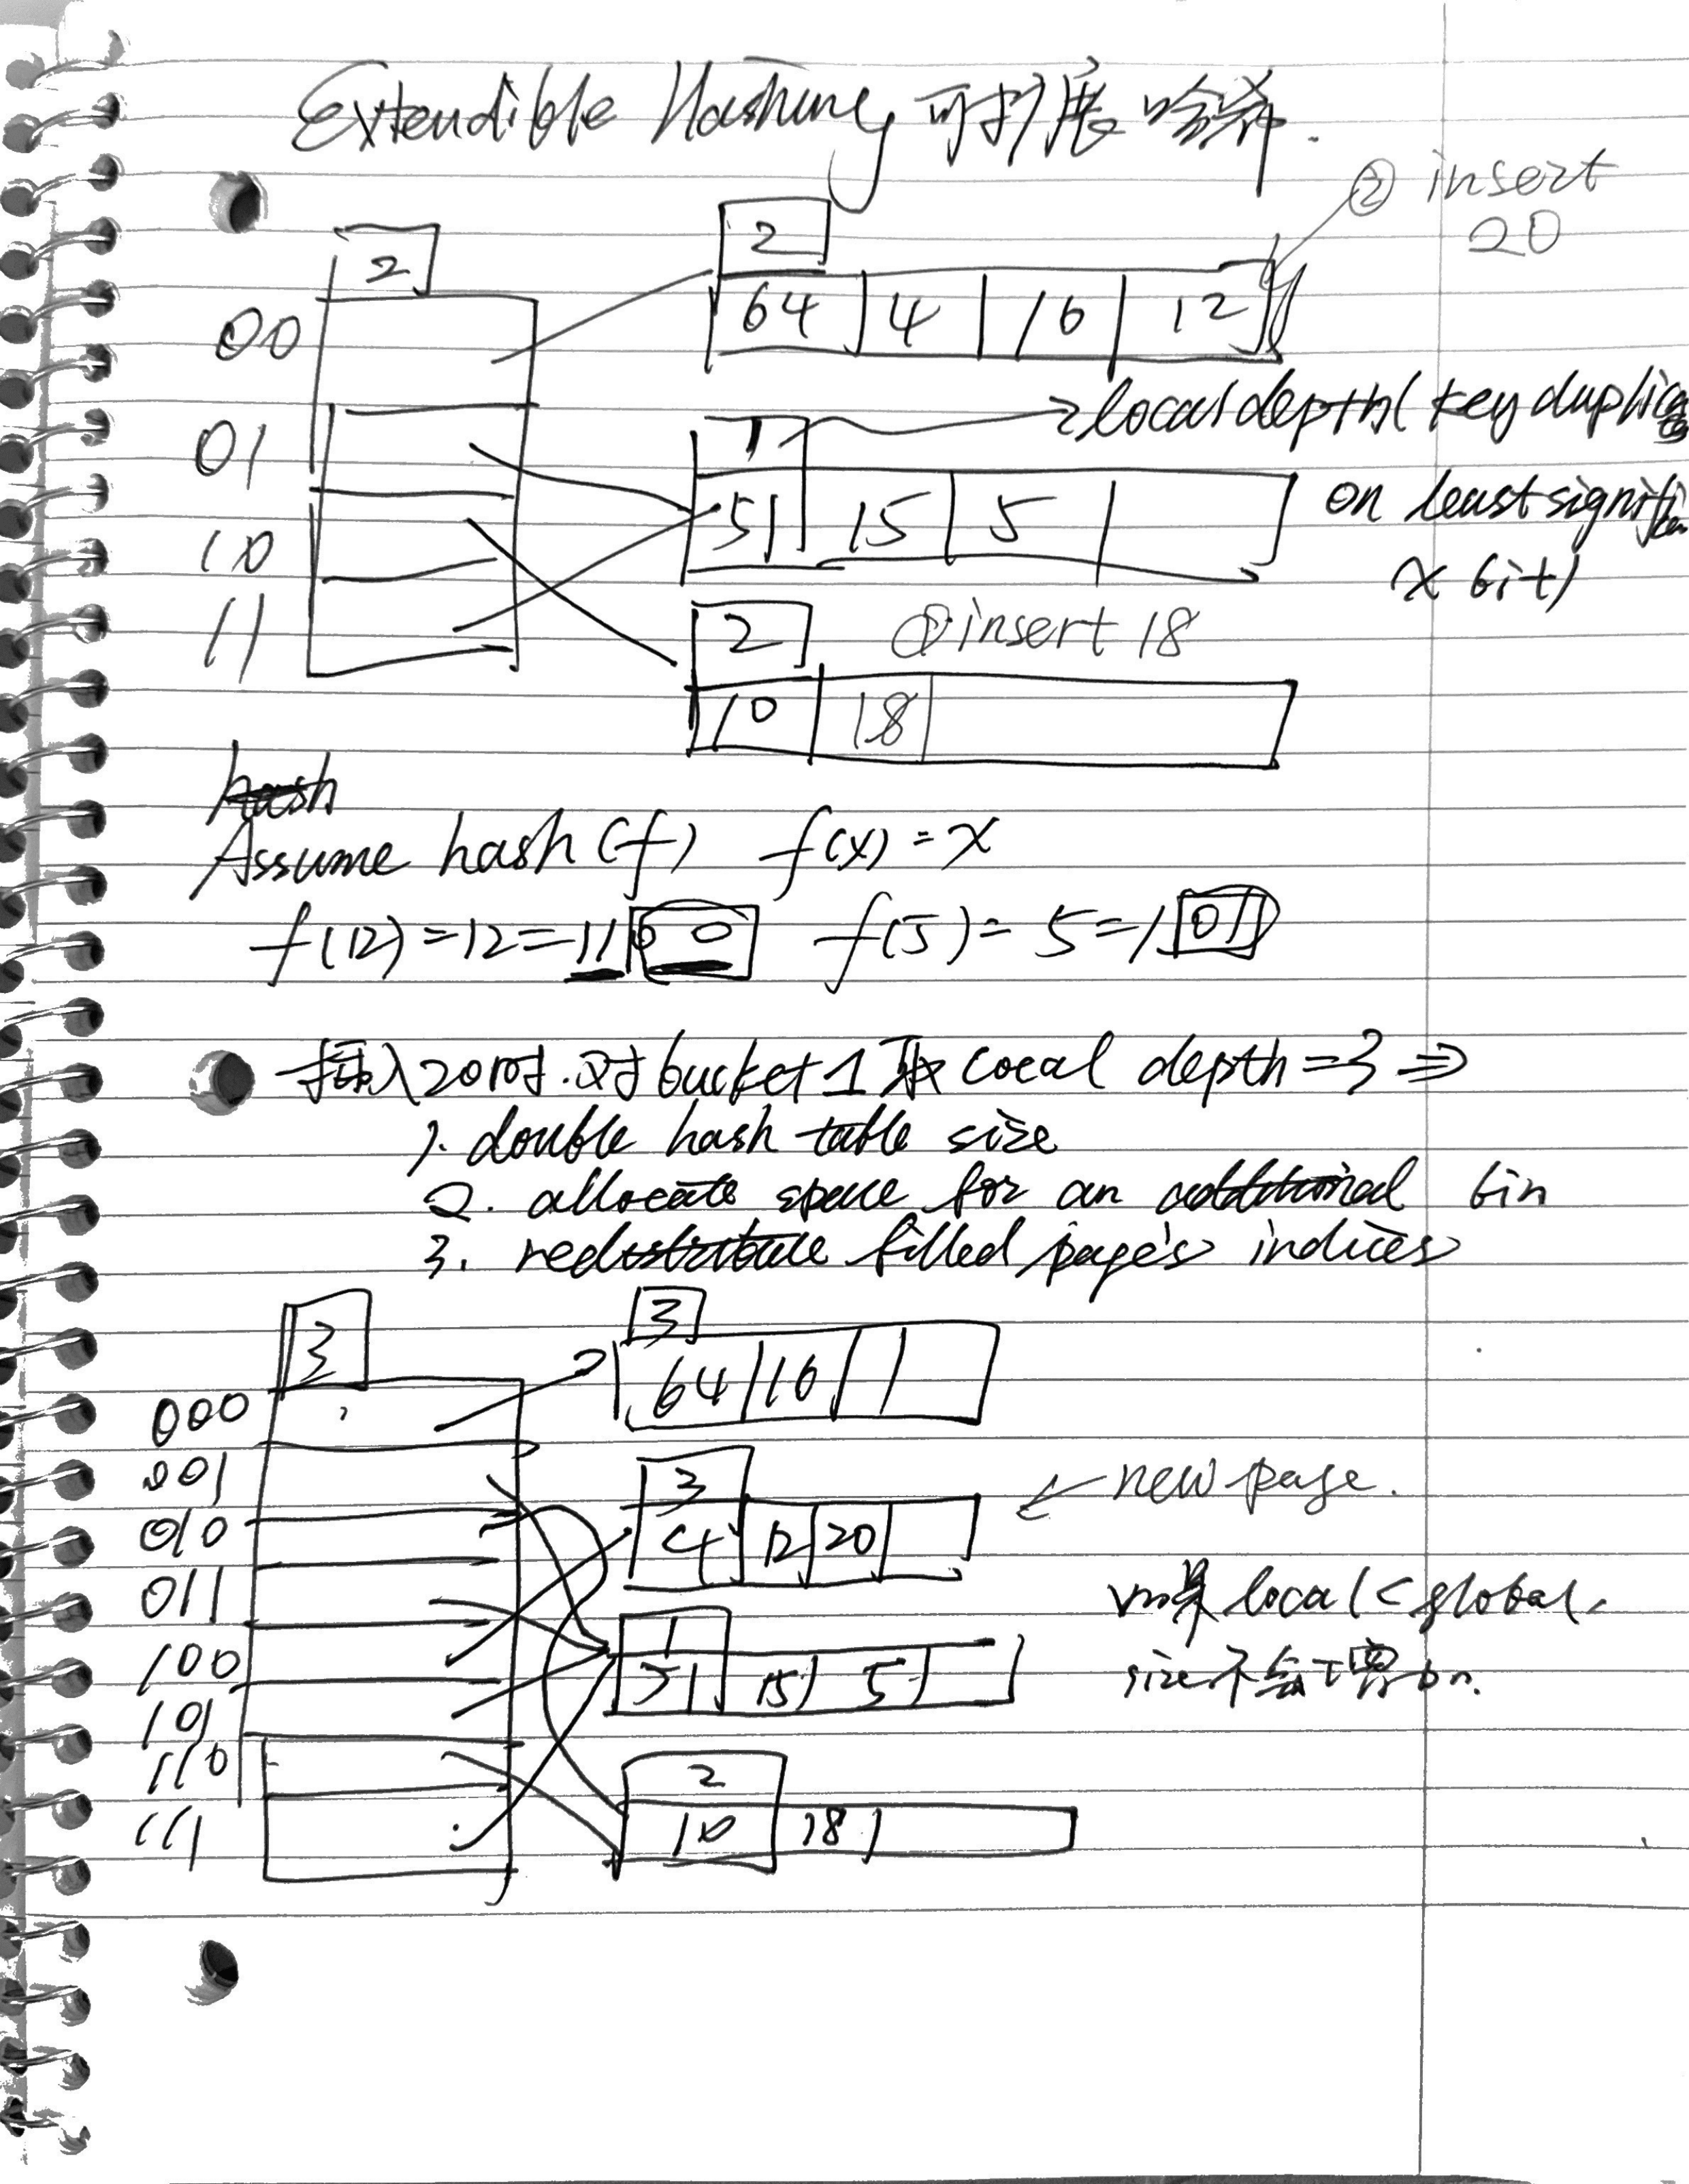 Extendible Hashing 可扩展哈希.
② insert
20
2
2
00
64 4 16 12
local depth (key duplicates
01
1
51 15 5
on least significan
10
x bit)
11
2
① insert 18
10 18
hash
Assume hash(f) f(x) = x
f(12) = 12 = 1100 f(5) = 5 = 101
插入20时.对bucket 1取local depth = 3 ⇒
1. double hash table size
2. allocate space for an additional bin
3. redistribute filled page's indices
3
3
000
64 16
001
3
← new page.
010
4 12 20
011
如果 local < global.
1
100
51 15 5
size不会
101
110
2
111
10 18